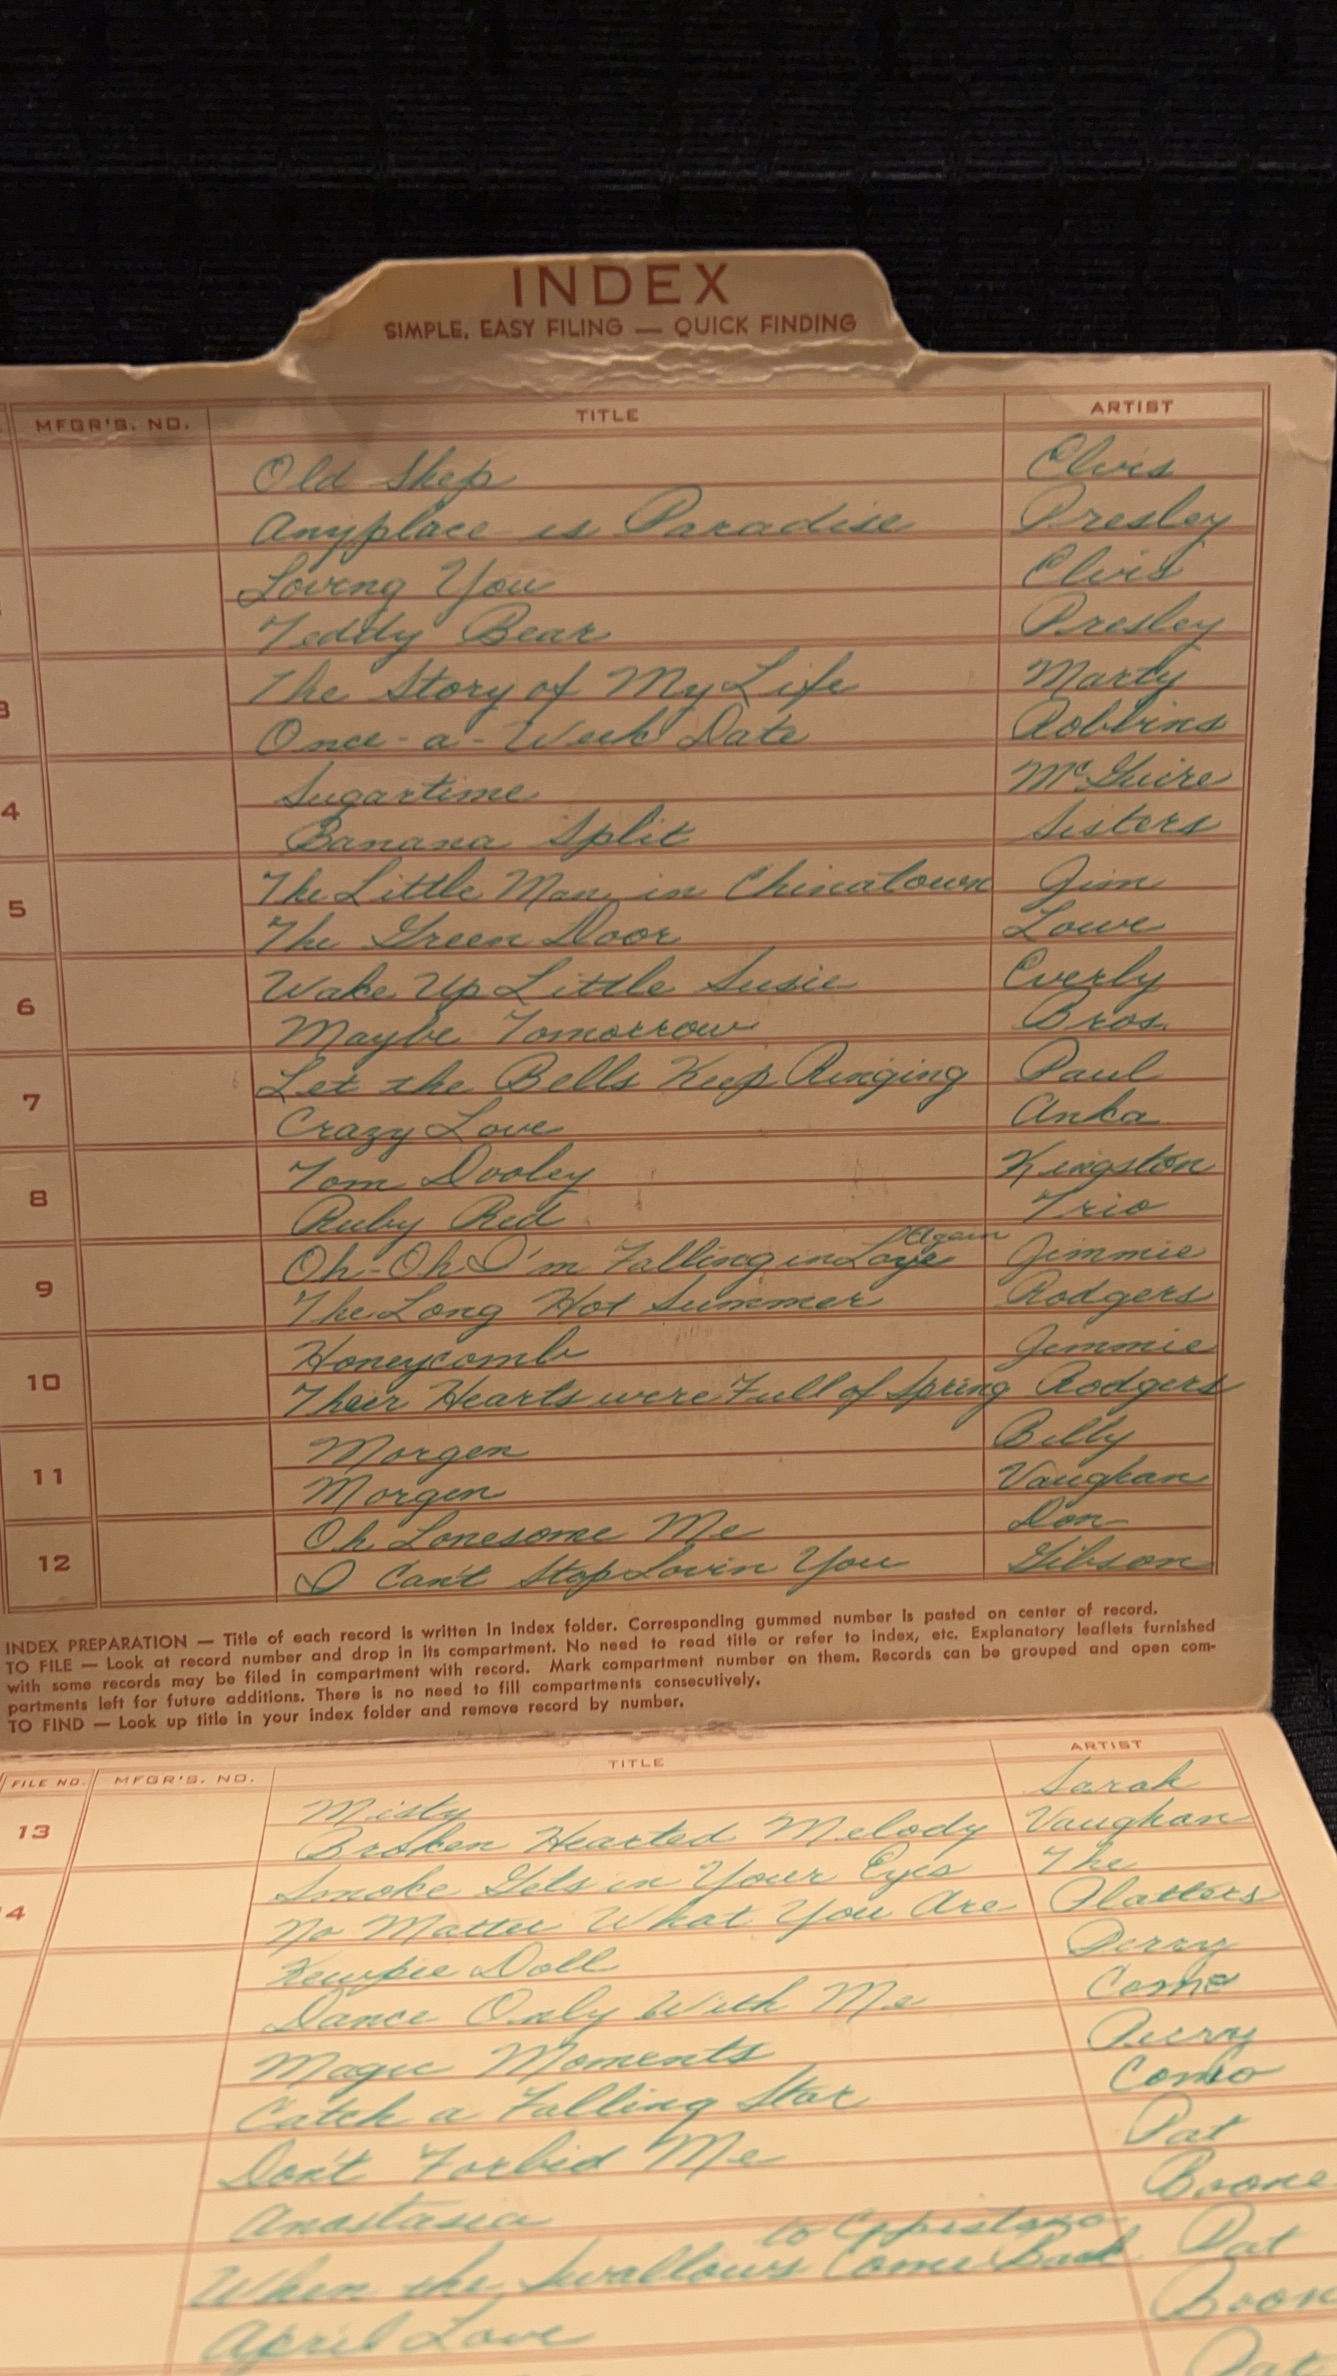 INDEX
SIMPLE, EASY FILING — QUICK FINDING
MFGR'S. NO. TITLE ARTIST
Old Shep Elvis
Anyplace is Paradise Presley
Loving You Elvis
Teddy Bear Presley
3 The Story of My Life Marty
Once-a-Week Date Robbins
4 Sugartime McGuire
Banana Split Sisters
5 The Little Man in Chinatown Jim
The Green Door Lowe
6 Wake Up Little Susie Everly
Maybe Tomorrow Bros.
7 Let the Bells Keep Ringing Paul
Crazy Love Anka
8 Tom Dooley Kingston
Ruby Red Trio
9 Oh-Oh I'm Falling in Love Again Jimmie
The Long Hot Summer Rodgers
10 Honeycomb Jimmie
Their Hearts were Full of Spring Rodgers
11 Morgen Billy
Morgen Vaughan
12 Oh Lonesome Me Don
I Can't Stop Lovin You Gibson
INDEX PREPARATION — Title of each record is written in index folder. Corresponding gummed number is pasted on center of record.
TO FILE — Look at record number and drop in its compartment. No need to read title or refer to index, etc. Explanatory leaflets furnished
with some records may be filed in compartment with record. Mark compartment number on them. Records can be grouped and open com-
partments left for future additions. There is no need to fill compartments consecutively.
TO FIND — Look up title in your index folder and remove record by number.
FILE NO. MFGR'S. NO. TITLE ARTIST
13 Misty Sarah
Broken Hearted Melody Vaughan
4 Smoke Gets in Your Eyes The
No Matter What You Are Platters
Kewpie Doll Perry
Dance Only With Me Como
Magic Moments Perry
Catch a Falling Star Como
Don't Forbid Me Pat
Anastasia Boone
When the Swallows Come Back to Pat
April Love Boon
Pat